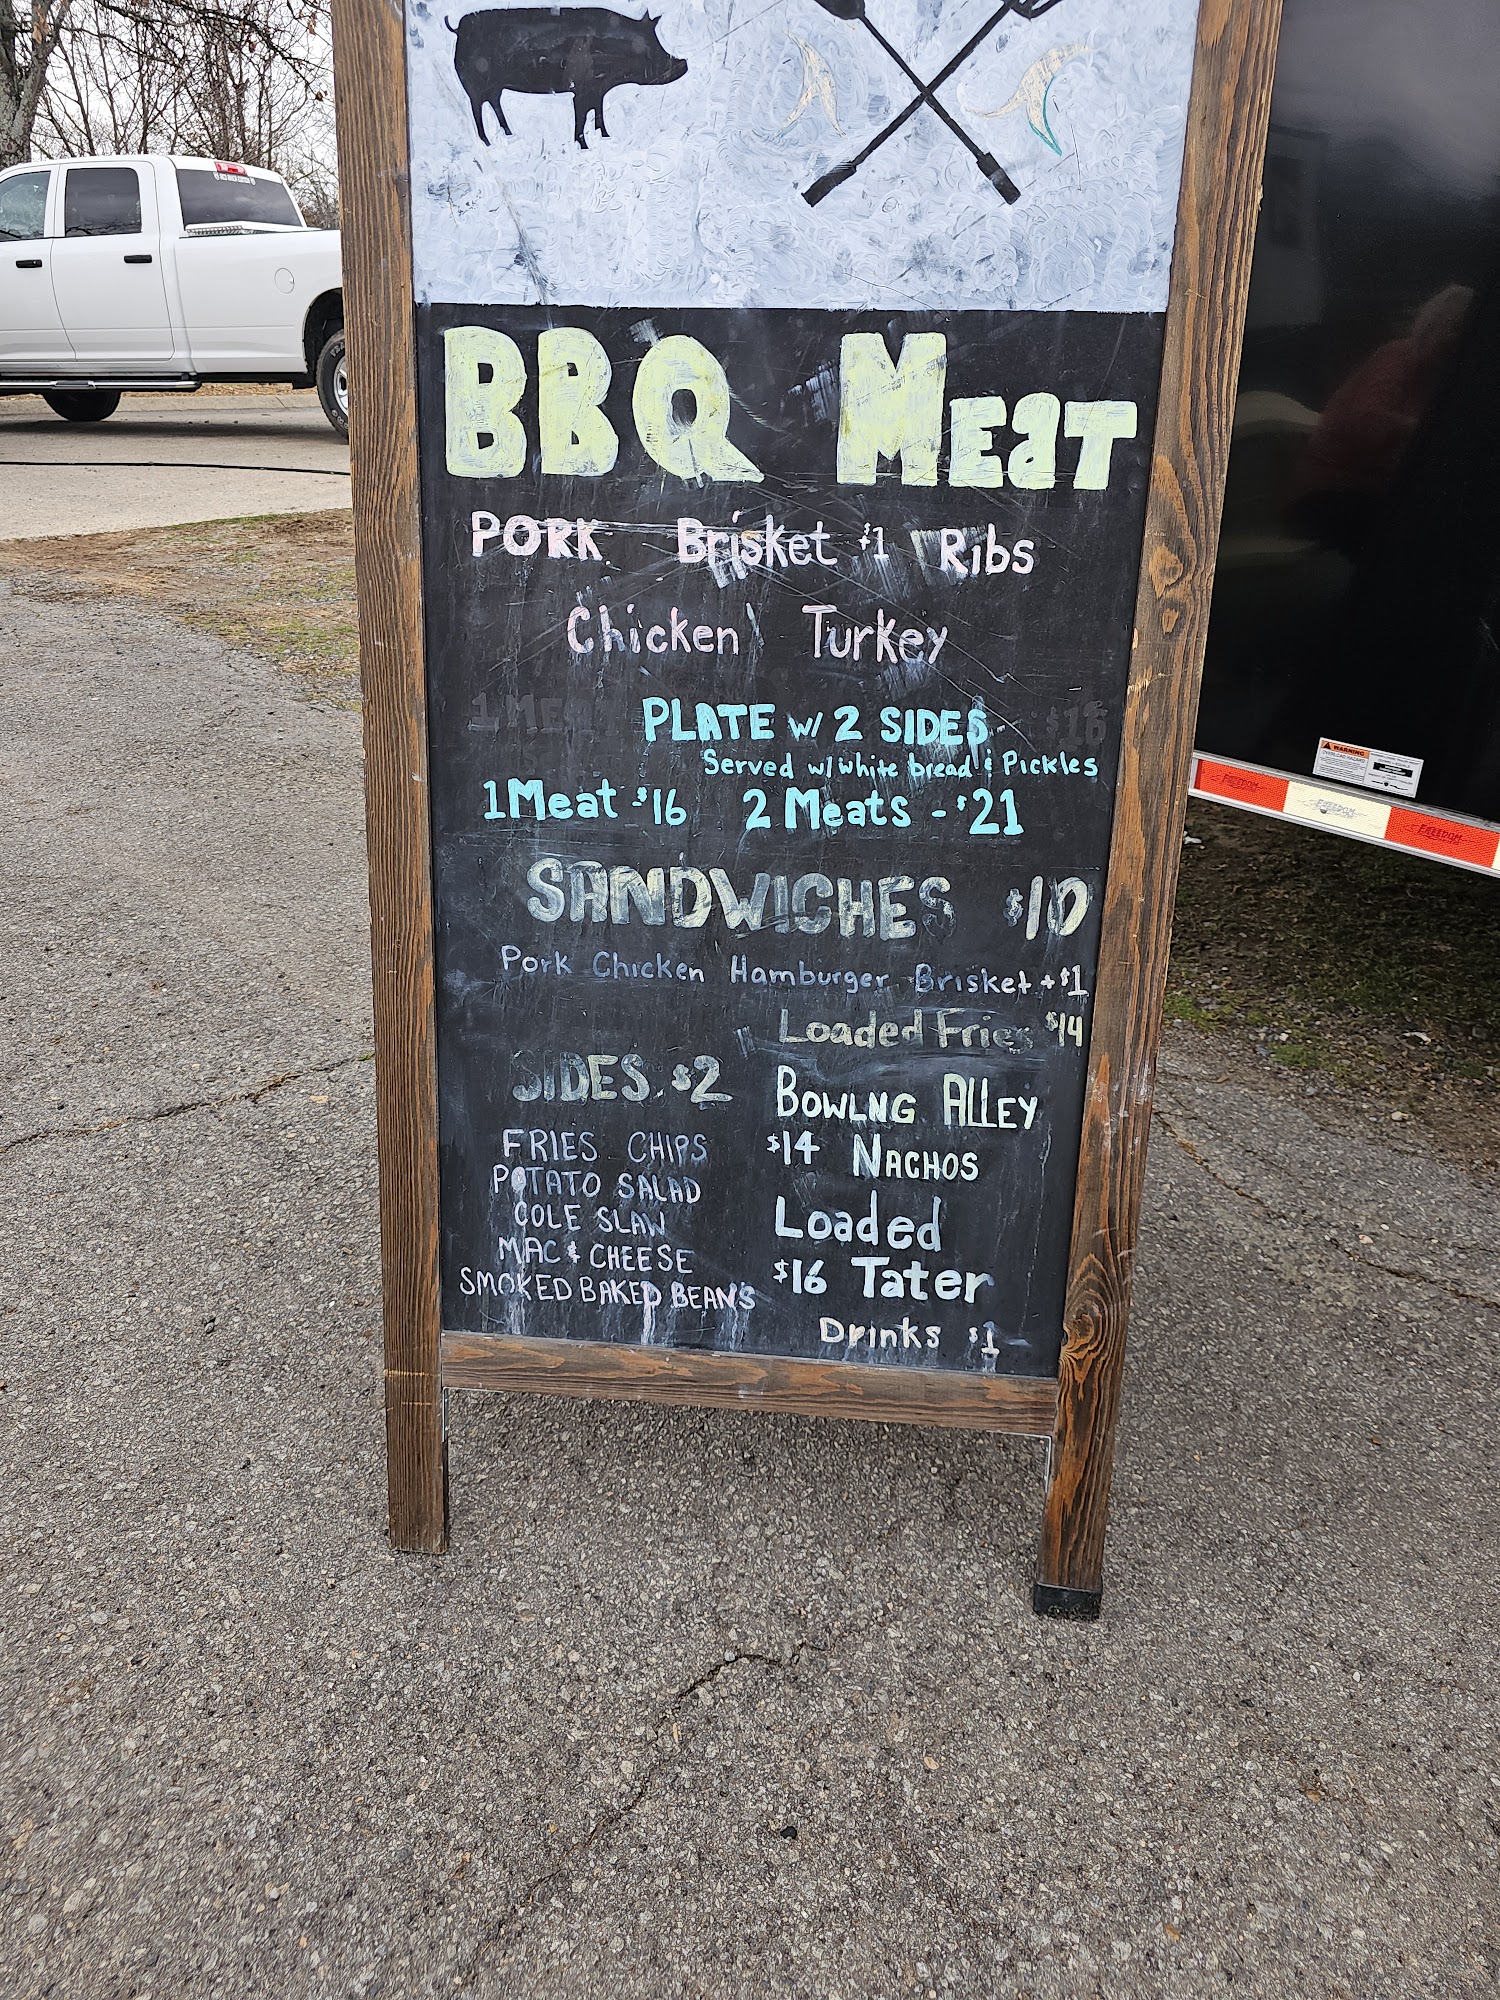 BBQ Meat
PORK Brisket $1 Ribs
Chicken Turkey
PLATE w/ 2 SIDES
Served w/ white bread & Pickles
1 Meat - $16 2 Meats - $21
SANDWICHES $10
Pork Chicken Hamburger Brisket + $1
Loaded Fries $14
SIDES $2
FRIES CHIPS
POTATO SALAD
COLE SLAW
MAC & CHEESE
SMOKED BAKED BEANS
BOWLNG ALLEY
$14 NACHOS
Loaded
$16 Tater
Drinks $1
WARNING
FREEDOM FREEDOM FREEDOM